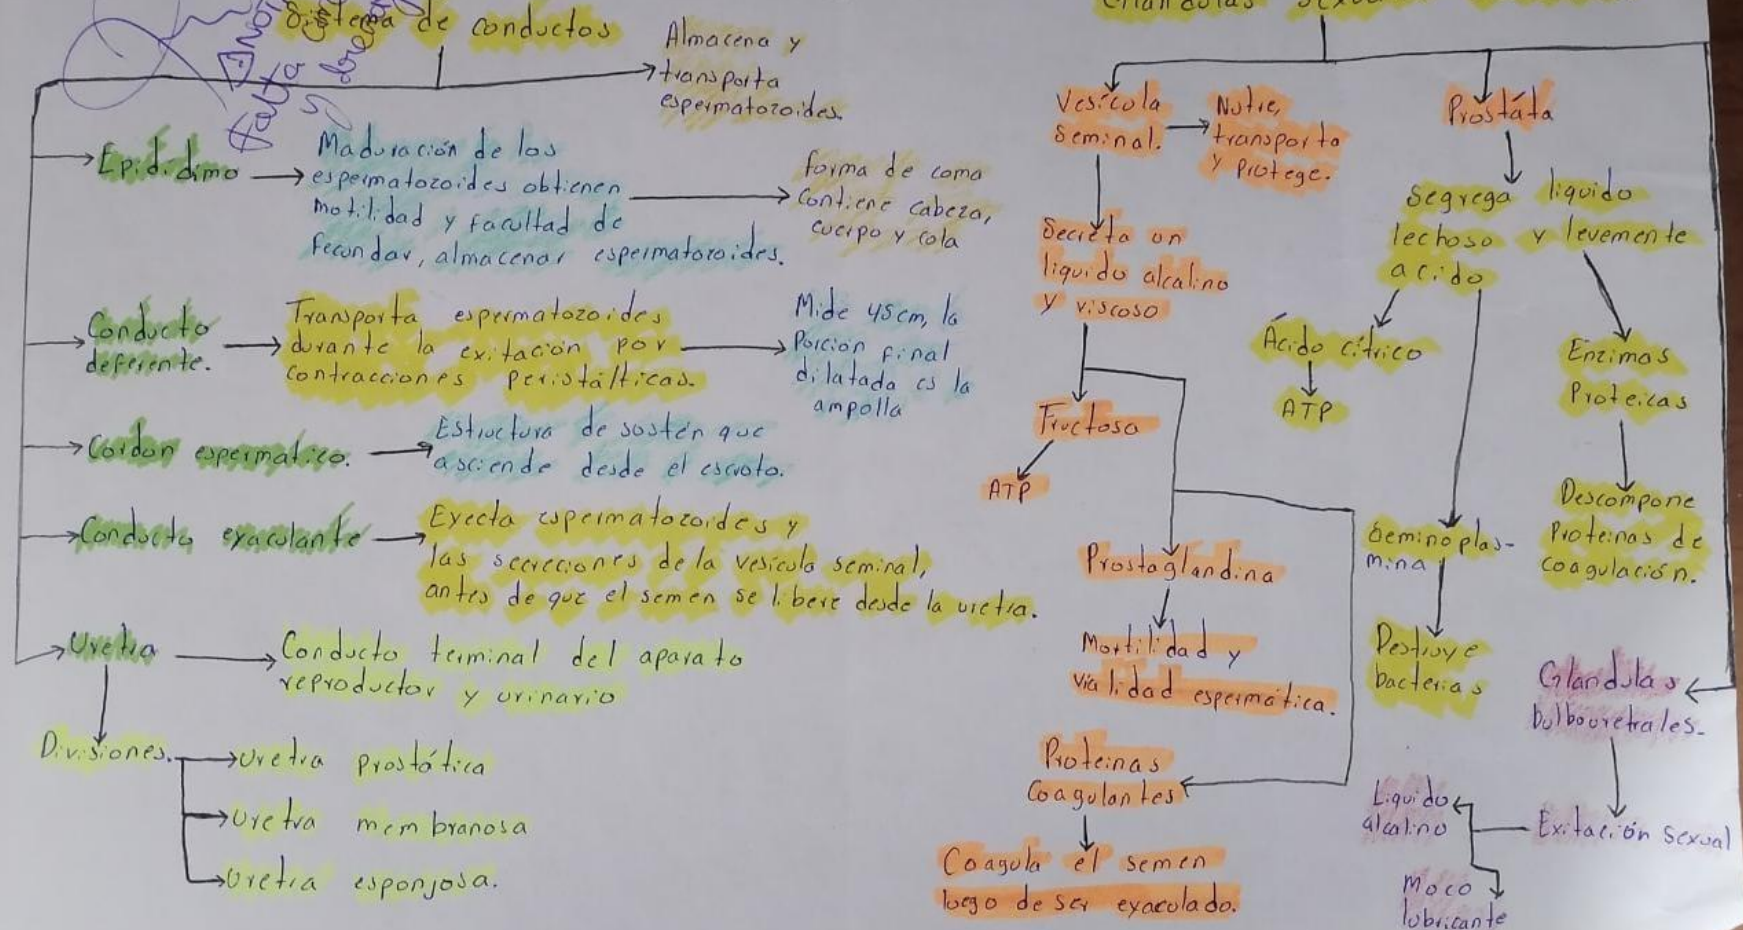 Sistema de conductos
Almacena y
transporta
espermatozoides.
Epididimo
Maduración de los
espermatozoides obtienen
motilidad y facultad de
fecundar, almacenar espermatozoides.
forma de coma
Contiene cabeza,
cuerpo y cola
Conducto
deferente.
Transporta espermatozoides
durante la exitación por
contracciones peristálticas.
Mide 45cm, la
Porción final
dilatada es la
ampolla
Cordon espermatico.
Estructura de sostén que
asciende desde el escroto.
Conducto eyaculante
Eyecta espermatozoides y
las secreciones de la vesícula seminal,
antes de que el semen se libere desde la uretra.
Uretra
Conducto terminal del aparato
reproductor y urinario
Divisiones.
Uretra prostática
Uretra membranosa
Uretra esponjosa.
Glandulas
Vesícula
Seminal.
Nutre,
transporta
y Protege.
Secreta un
liquido alcalino
y viscoso
Fructosa
ATP
Prostaglandina
Mortilidad y
vialidad espermática.
Proteinas
Coagulantes
Coagula el semen
luego de ser eyaculado.
Prostáta
Segrega liquido
lechoso y levemente
acido
Ácido cítrico
ATP
Seminoplas-
mina
Destruye
bacterias
Enzimas
Proteicas
Descompone
Proteinas de
coagulación.
Glandulas
bulbouretrales.
Exitación sexual
Liquido
alcalino
Moco
lubricante
Falta